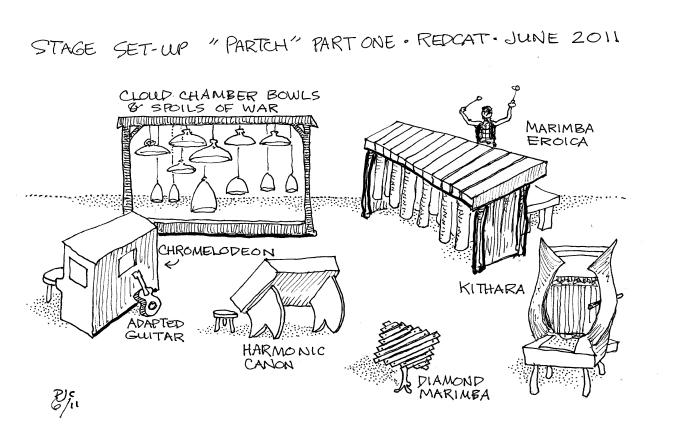 STAGE SET-UP "PARTCH" PART ONE · REDCAT · JUNE 2011
CLOUD CHAMBER BOWLS
& SPOILS OF WAR
MARIMBA
EROICA
CHROMELODEON
KITHARA
ADAPTED
GUITAR
HARMONIC
CANON
DIAMOND
MARIMBA
6/11